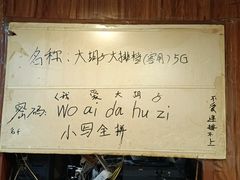 名称：大胡子大排档(客用)5G
(我 爱 大 胡 子
密码：wo ai da hu zi
小写全拼
不爱连接不上